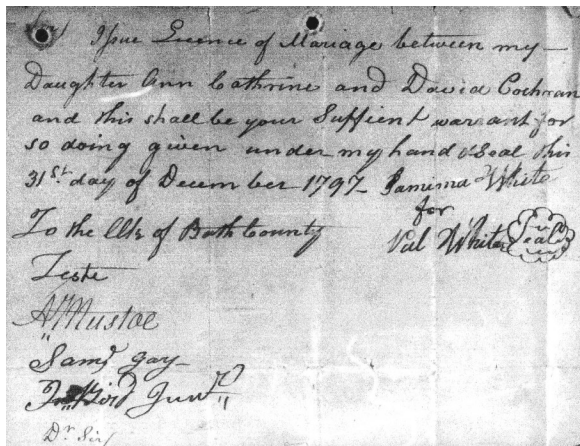 Issue Licence of Mariage between my
Daughter Ann Cathrine and David Cochran
and this shall be your Suffient warrant for
so doing given under my hand & Seal this
31st. day of December 1797 - Jamima White
for
To the Clk of Bath County Val White Seal
Teste
A Mustoe
Saml Gay
Junr
Dr Sir